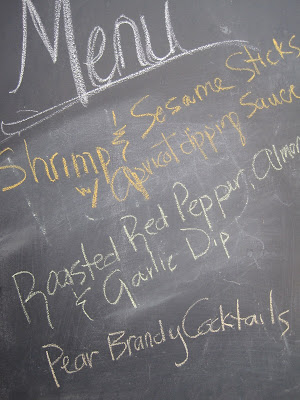 Menu
Shrimp & Sesame Sticks
w/ Apricot dipping Sauce
Roasted Red Pepper, Almon
& Garlic Dip
Pear Brandy Cocktails